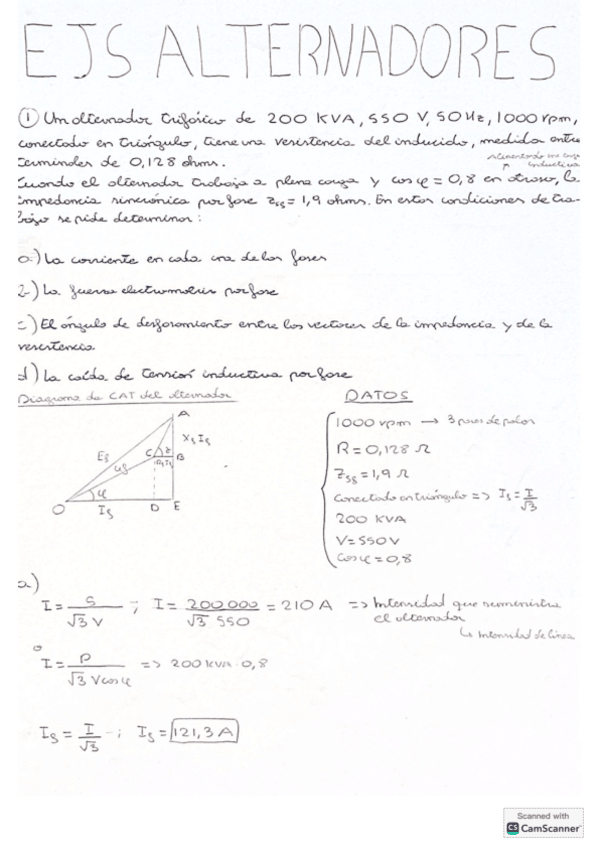 EJS ALTERNADORES
① Un alternador trifásico de 200 KVA, 550 V, 50Hz, 1000 rpm,
conectado en triángulo, tiene una resistencia del inducido, medida entre
terminales de 0,128 ohms.
alimentando una carga
inductiva
Cuando el alternador trabaja a plena carga y cosφ = 0,8 en atraso, la
impedancia sincrónica por fase Zsf = 1,9 ohms. En estas condiciones de tra-
bajo se pide determinar:
a) La corriente en cada una de las fases
2) La fuerza electromotriz por fase
c) El ángulo de desfasamiento entre los vectores de la impedancia y de la
resistencia
d) La caída de tensión inductiva por fase
Diagrama de CAT del alternador
DATOS
A
Xf If
Ef
Uf
C
Z
B
φ
O
If
D
E
1000 rpm → 3 pares de polos
R = 0,128 Ω
Zsf = 1,9 Ω
Conectado en triángulo => If = I/√3
200 KVA
V = 550 V
cosφ = 0,8
a)
I = S/√3 V ; I = 200 000/√3 550 = 210 A => Intensidad que suministra
el alternador
↳ Intensidad de línea
o
I = P/√3 V cosφ => 200 kva · 0,8
If = I/√3 ; If = 121,3 A
Scanned with
CS CamScanner